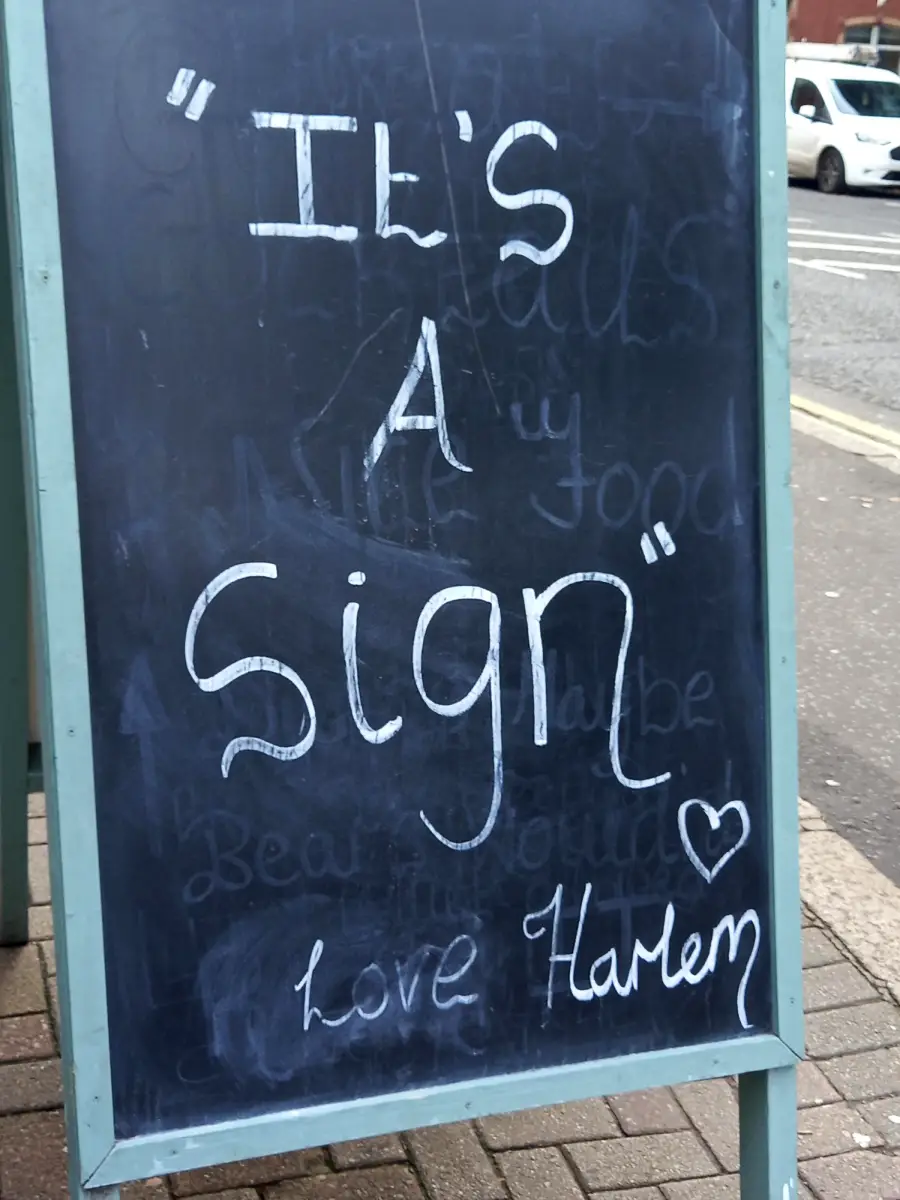 "It's
A
Sign"
Love Harlem